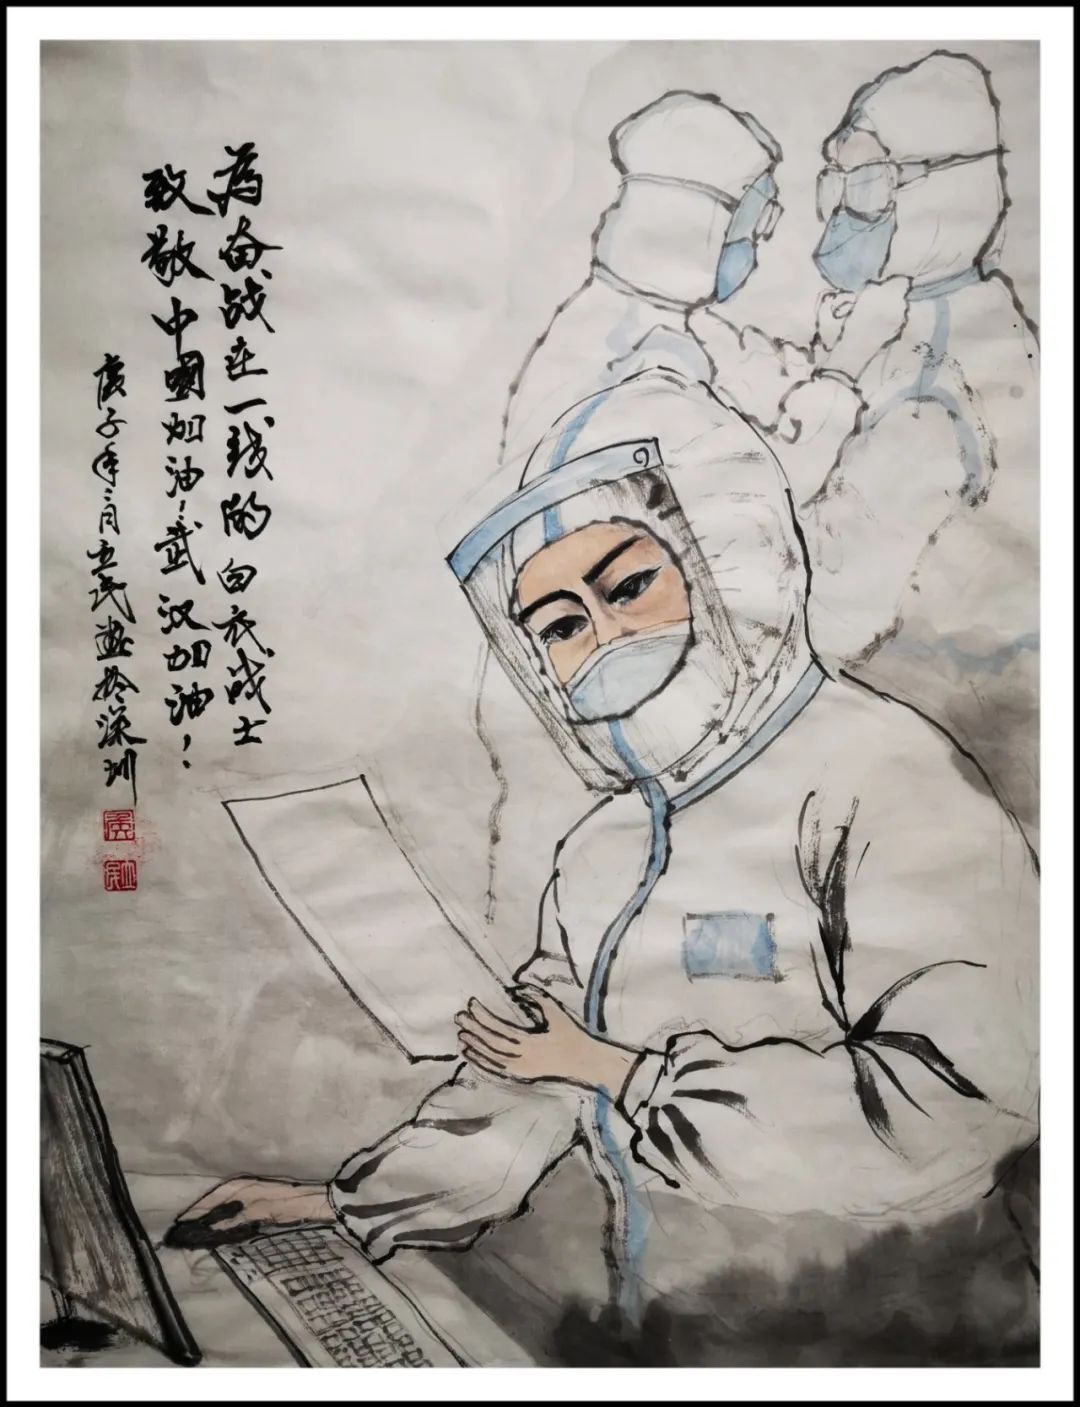 為奋战在一线的白衣战士
致敬中國加油！武汉加油！
庚子年二月立民畫於深圳